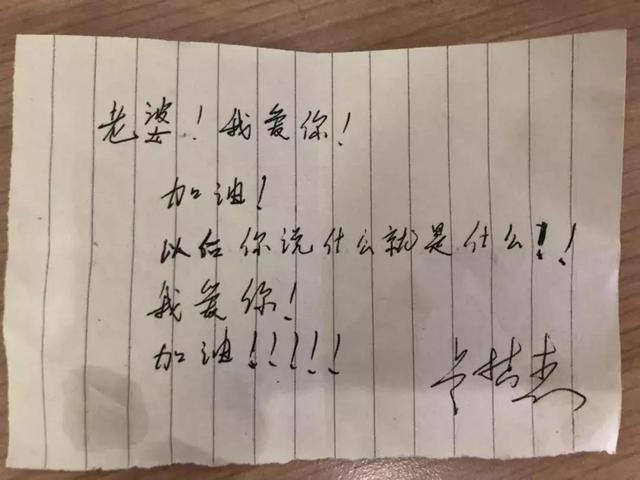 老婆！我爱你！
加油！
以后你说什么就是什么！！
我爱你！
加油！！！！！